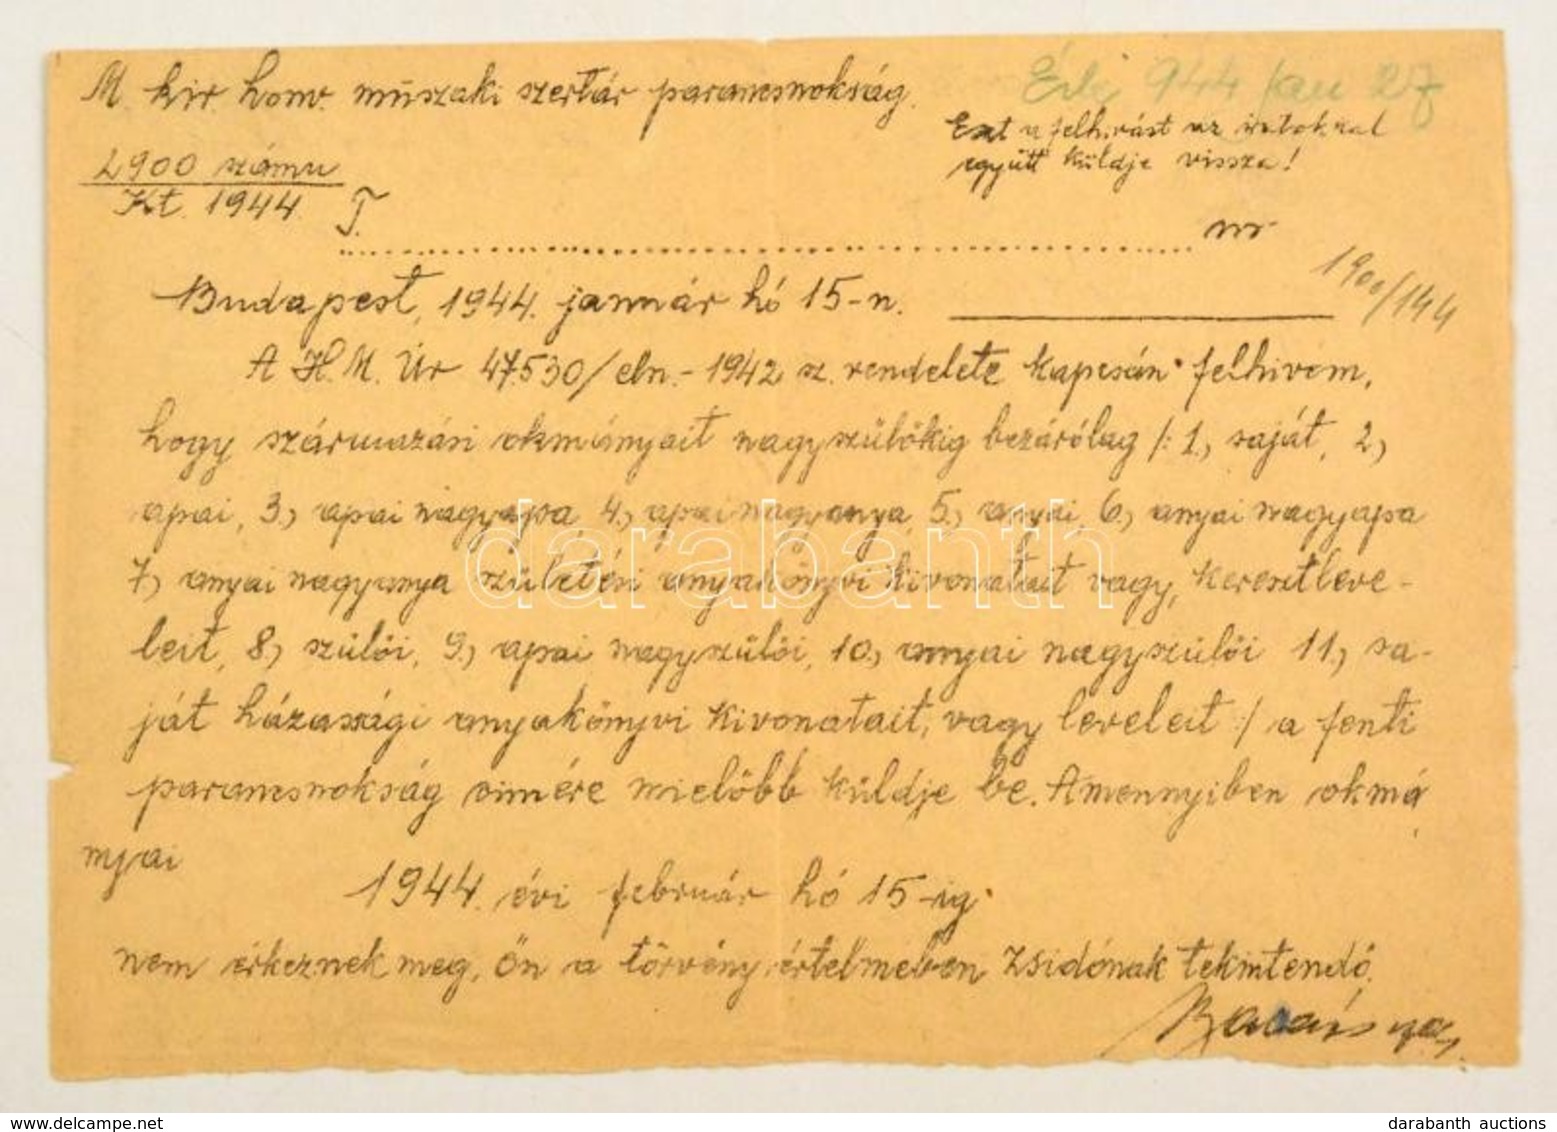 M. kir. honv. műszaki szertár parancsnokság.
Érk. 944 jan 27
Ezt a felhivást az iratokkal
együtt küldje vissza!
2900 számu
Kt. 1944
T.
........................................ ur
1900/144
Budapest, 1944. január hó 15-n.
A H. M. Úr 47530/eln.-1942 sz. rendelete kapcsán felhivom,
hogy származási okmányait nagyszülőkig bezárólag /: 1., saját, 2.,
apai, 3., apai nagyapa, 4., apai nagyanya, 5., anyai, 6., anyai nagyapa
7., anyai nagyanya születési anyakönyvi kivonatait vagy, keresztleve-
leit, 8., szülői, 9., apai nagyszülői, 10., anyai nagyszülői 11., sa-
ját házassági anyakönyvi kivonatait, vagy leveleit :/ a fenti
parancsnokság cimére mielöbb küldje be. Amennyiben okmá
nyai
1944. évi február hó 15-ig
nem érkeznek meg, Ön a törvény értelmében zsidónak tekintendő.
darabanth
darabanth auctions
delcampe.net